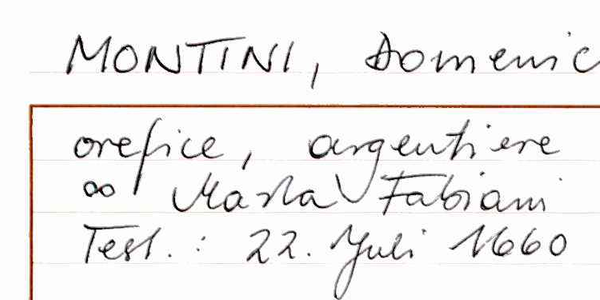 MONTINI, Domenic
orefice, argentiere
∞ Marta Fabiani
Test.: 22. Juli 1660